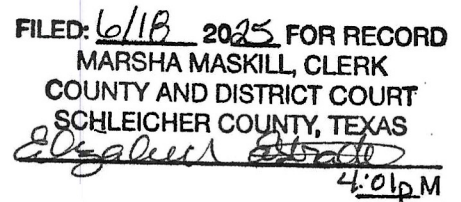 FILED: 6/18 2025 FOR RECORD
MARSHA MASKILL, CLERK
COUNTY AND DISTRICT COURT
SCHLEICHER COUNTY, TEXAS
Elizabeth
4:01p M